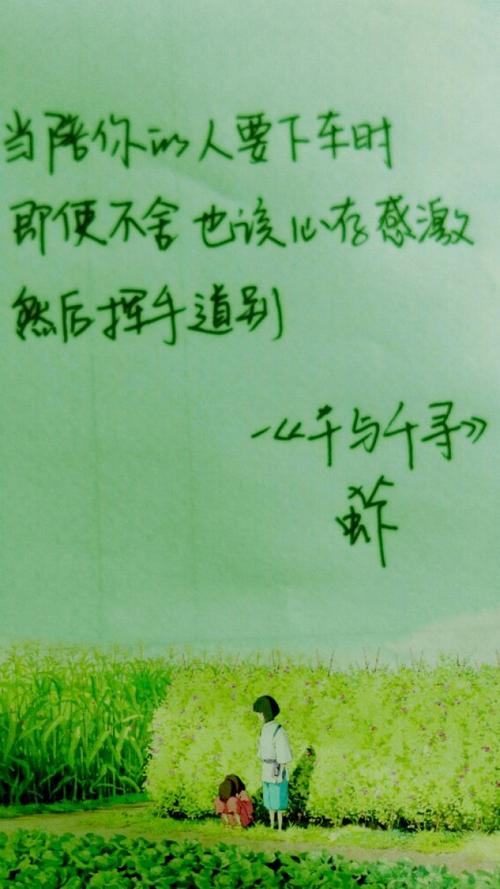 当陪你的人要下车时
即便不舍也该心存感激
然后挥手道别
—《千与千寻》